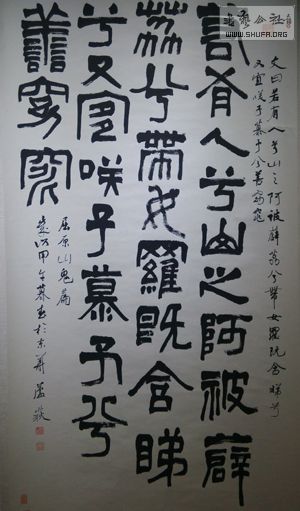 书艺公社
WWW.SHUFA.ORG
文曰若有人兮山之阿被薜荔兮帶女羅既含睇兮
又宜咲子慕予兮善窈窕
若有人兮山之阿被薜
荔兮帶女羅既含睇
兮又宜咲子慕予兮
善窈窕
屈原山鬼篇
歲次甲午暮春於京華